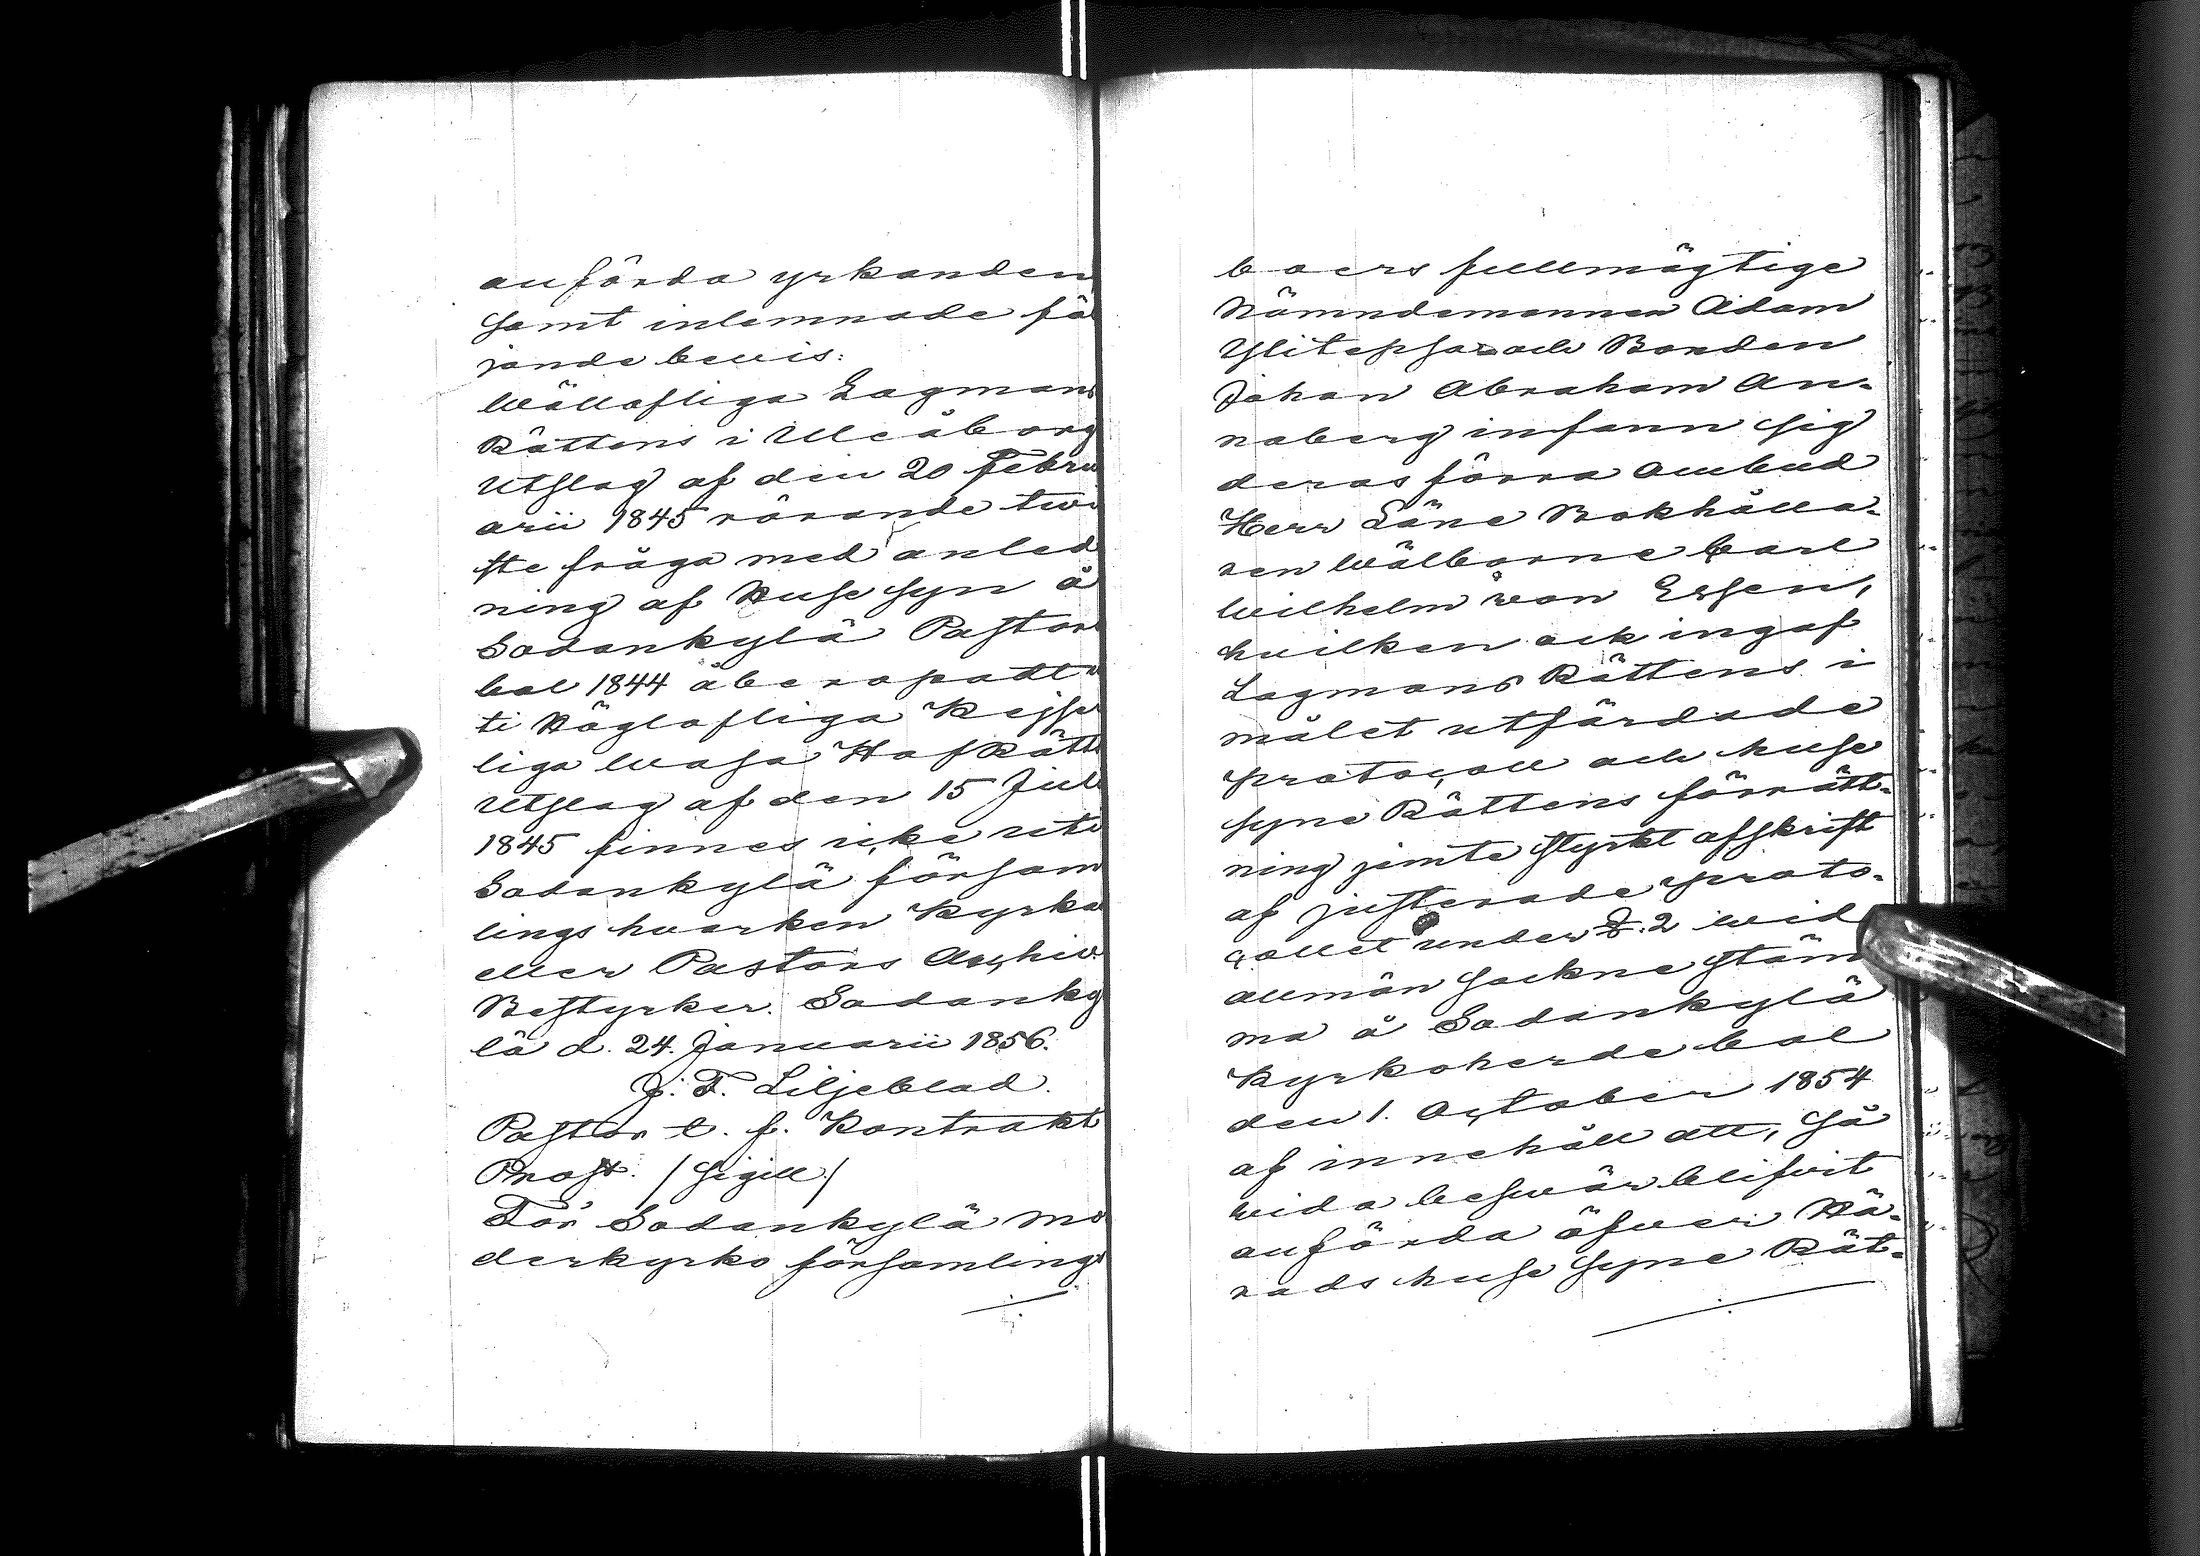 anförda yrkanden
samt inlemnade föl
jande bevis:
Wällofliga Lagmans
Rättens i Uleåborg
Utslag af den 20 Febru
arii 1845 rörande twi
ste fråga med anled
ning af Huse syn å
Sodankylä Pastors
bol 1844 åberopadt
ti Höglofliga Kejser
liga Wasa HofRätts
Utslag af den 15 Juli
1845 finnes icke uti
Sodankylä försam
lings hvarken Kyrko
eller Pastors Archiv.
Bestyrker. Sodanky
lä d. 24. Januarii 1856.
J. F. Liljeblad.
Pastor t. f. Kontrakt
Prost. /Sigill/
För Sodankylä mo
derkyrko församlings
boers fullmägtige
Nämndemannen Adam
Ylitepsa och Bonden
Johan Abraham An-
naberg infann sig
deras förra Ombud
Herr Läne Bokhålla-
ren Wälborne Carl
Wilhelm von Essen,
hvilken ock ingaf
Lagmans Rättens i
målet utfärdade
protocoll och huse
syne Rättens förrätt-
ning jemte styrkt afskrift
af justerade proto-
collet under § 2 wid
allmän Sockne stäm
ma å Sodankylä
Kyrkoherde bol
den 1. October 1854
af innehåll att, så
vida beswär blifvit
anförda öfwer Hä-
rads huse syne Rät-